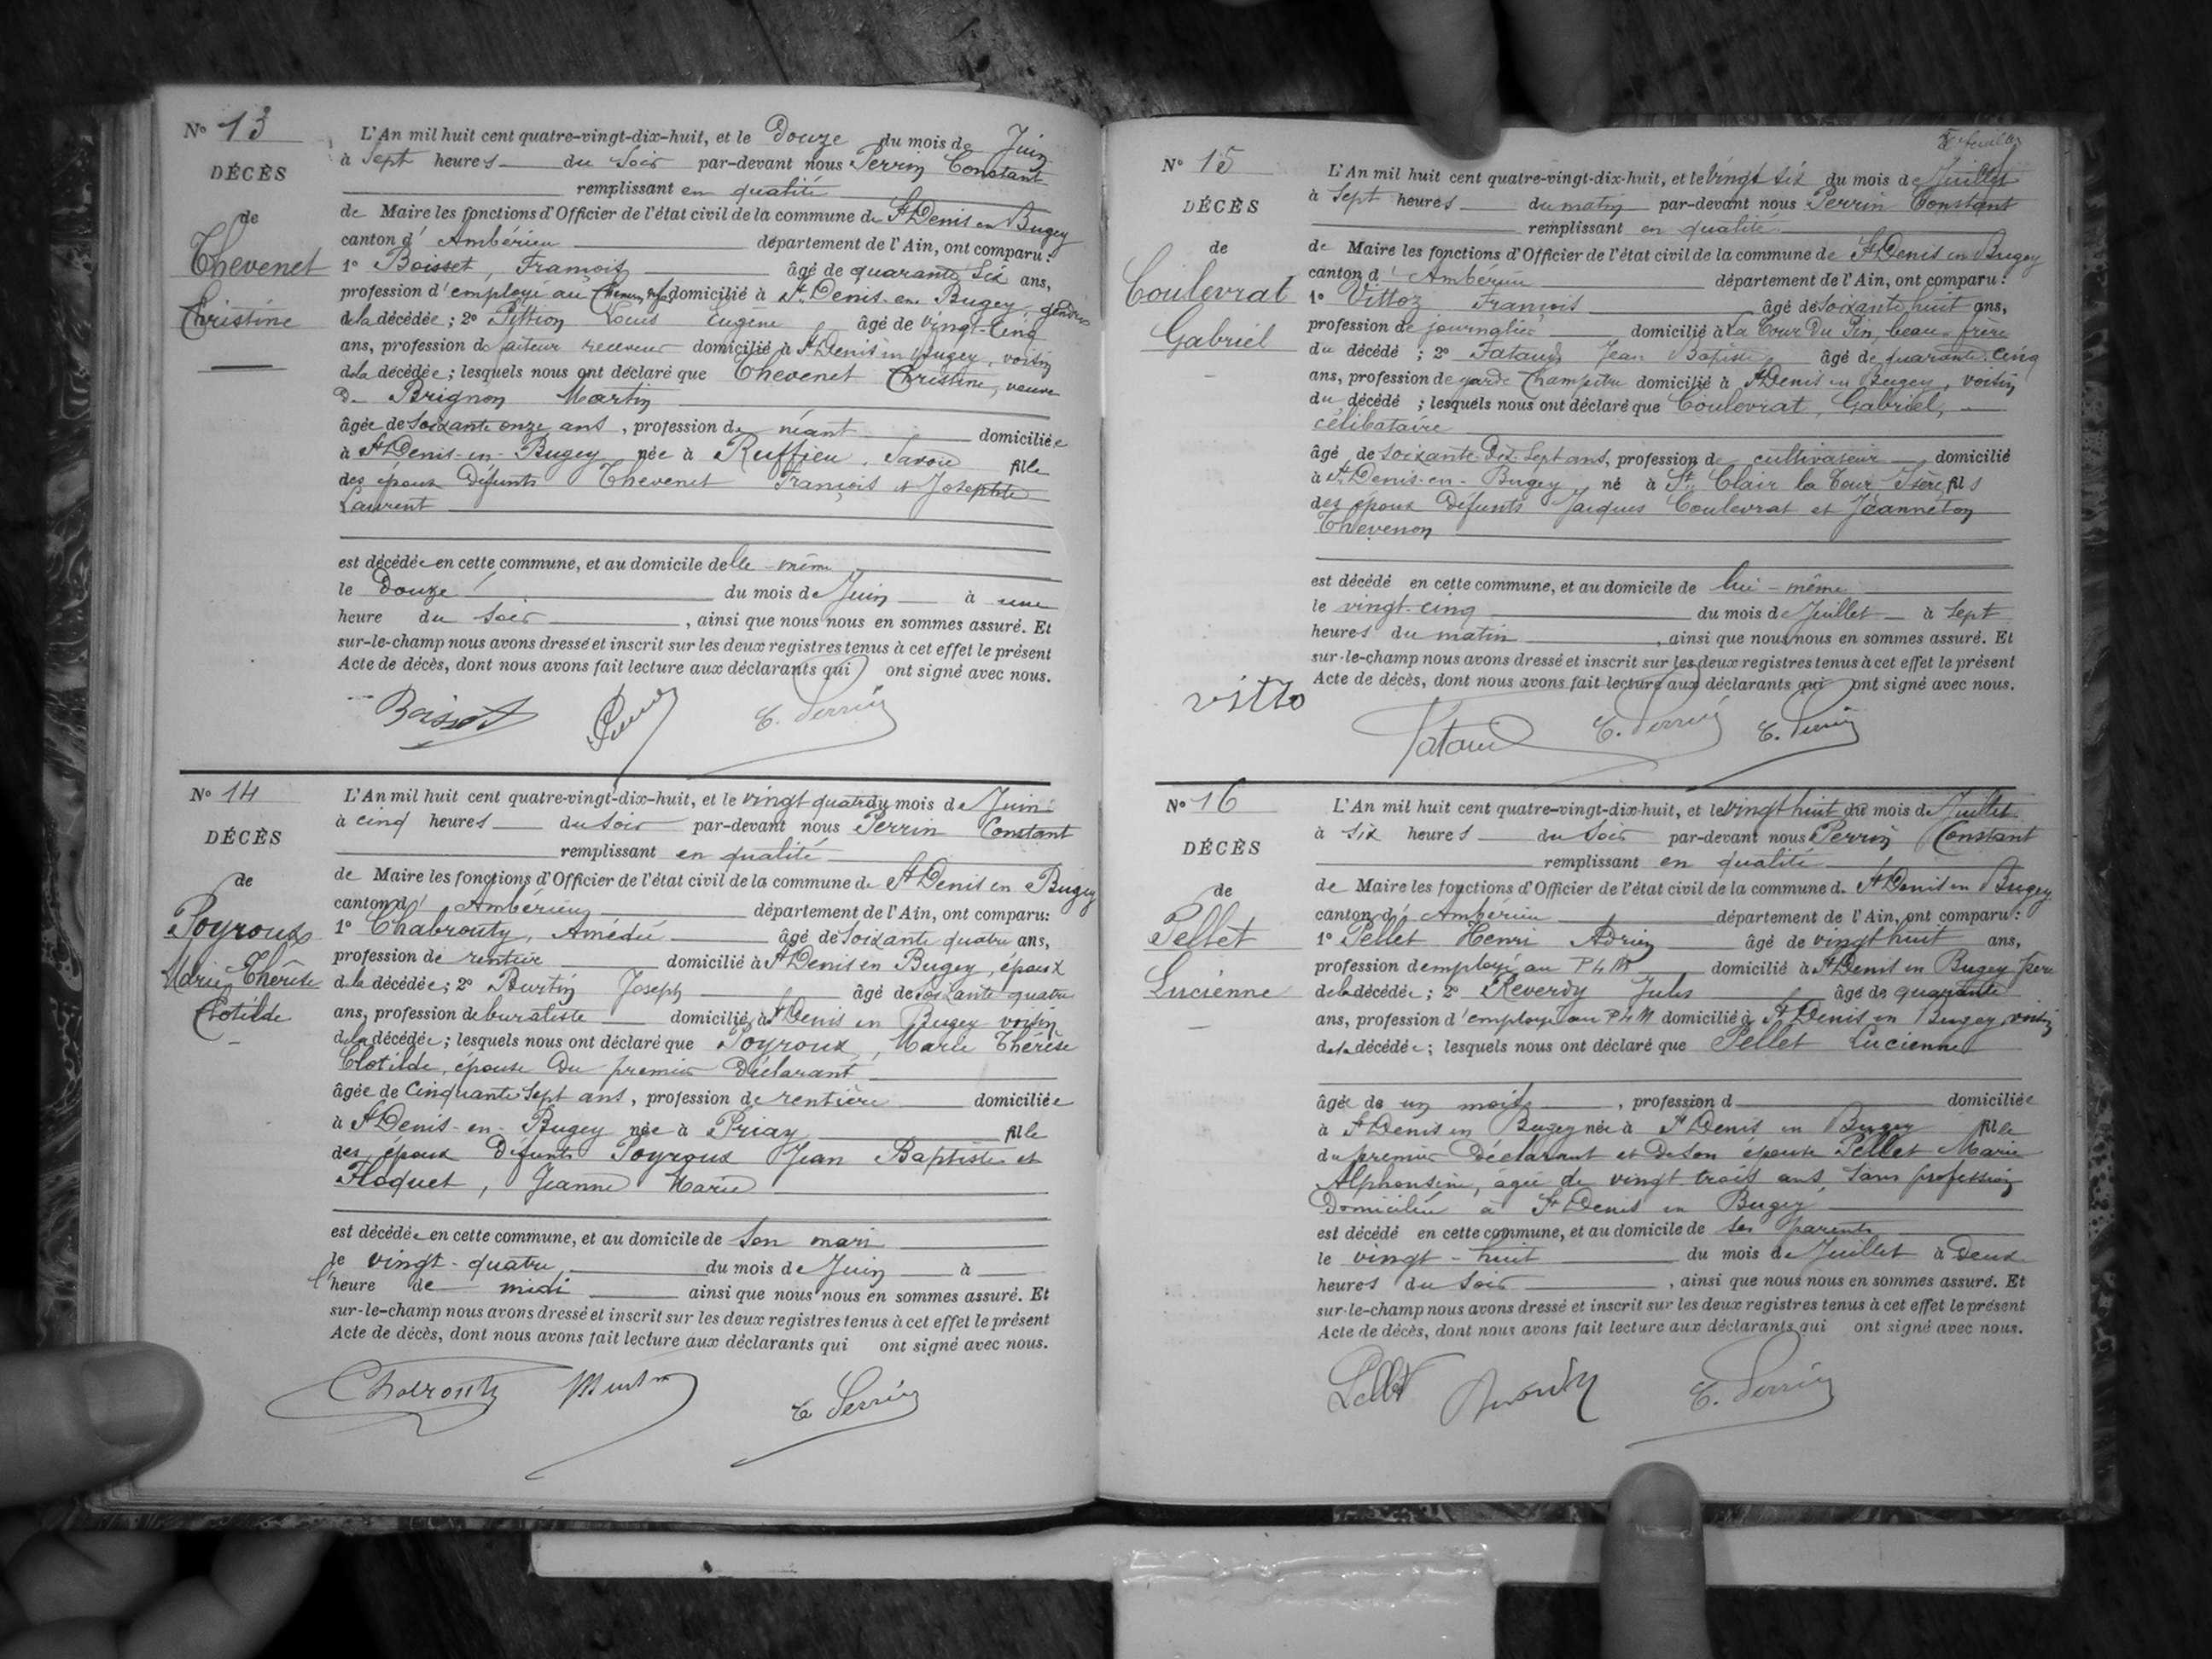 N° 13
DÉCÈS
de
Thevenet
Christine
L'An mil huit cent quatre-vingt-dix-huit, et le Douze du mois de Juin
à Sept heures du Soir par-devant nous Perrin Constant
remplissant en qualité
de Maire les fonctions d'Officier de l'état civil de la commune de St Denis en Bugey
canton d' Ambérieu département de l'Ain, ont comparu:
1° Boisset, François âgé de quarante Six ans,
profession d'employé au domicilié à St Denis-en Bugey, gendre
de la décédée; 2° Pittion Louis Eugène âgé de Vingt-Cinq
ans, profession de facteur receveur domicilié à St Denis en Bugey, voisin
de la décédée; lesquels nous ont déclaré que Thevenet Christine, veuve
de Brignon Martin
âgée de Soixante onze ans, profession de néant domiciliée
à St Denis-en-Bugey née à Ruffieu, Savoie fille
des époux Défunts Thevenet François et Josephte
Laurent
est décédée en cette commune, et au domicile delle-même
le Douze du mois de Juin à une
heure du Soir, ainsi que nous nous en sommes assuré. Et
sur-le-champ nous avons dressé et inscrit sur les deux registres tenus à cet effet le présent
Acte de décès, dont nous avons fait lecture aux déclarants qui ont signé avec nous.
Boisset C. Perrin
N° 14
DÉCÈS
de
Poyroux
Marie Thérèse
Clotilde
L'An mil huit cent quatre-vingt-dix-huit, et le vingt quatre du mois de Juin
à cinq heures du Soir par-devant nous Perrin Constant
remplissant en qualité
de Maire les fonctions d'Officier de l'état civil de la commune de St Denis en Bugey
canton d' Ambérieu département de l'Ain, ont comparu:
1° Chabrouty, Amédée âgé de Soixante quatre ans,
profession de rentier domicilié à St Denis en Bugey, époux
de la décédée; 2° Burtin Joseph âgé de soixante quatre
ans, profession de buraliste domicilié à St Denis en Bugey voisin
de la décédée; lesquels nous ont déclaré que Poyroux, Marie Thérèse
Clotilde, épouse Du premier Déclarant
âgée de Cinquante Sept ans, profession de rentière domiciliée
à St Denis-en-Bugey née à Priay fille
des époux Défunts Poyroux Jean Baptiste et
Floquet, Jeanne Marie
est décédée en cette commune, et au domicile de Son mari
le vingt-quatre du mois de Juin à
l'heure de midi ainsi que nous nous en sommes assuré. Et
sur-le-champ nous avons dressé et inscrit sur les deux registres tenus à cet effet le présent
Acte de décès, dont nous avons fait lecture aux déclarants qui ont signé avec nous.
Chabrouty C Perrin
N° 15
DÉCÈS
de
Coulevrat
Gabriel
L'An mil huit cent quatre-vingt-dix-huit, et le Vingt Six du mois de Juillet
à Sept heures du matin par-devant nous Perrin Constant
remplissant en qualité
de Maire les fonctions d'Officier de l'état civil de la commune de St Denis en Bugey
canton d' Ambérieu département de l'Ain, ont comparu:
1° Vittoz François âgé de Soixante huit ans,
profession de journalier domicilié à La Tour Du Pin, beau-frère
du décédé; 2° Pataud Jean Baptiste âgé de quarante cinq
ans, profession de garde Champêtre domicilié à St Denis en Bugey, voisin
du décédé; lesquels nous ont déclaré que Coulevrat, Gabriel,
célibataire
âgé de Soixante Dix Sept ans, profession de cultivateur domicilié
à St Denis-en-Bugey né à St Clair la Tour Isère fils
des époux Défunts Jacques Coulevrat et Jeanneton
Thevenon
est décédé en cette commune, et au domicile de lui-même
le vingt-cinq du mois de Juillet à Sept
heures du matin, ainsi que nous nous en sommes assuré. Et
sur-le-champ nous avons dressé et inscrit sur les deux registres tenus à cet effet le présent
Acte de décès, dont nous avons fait lecture aux déclarants qui ont signé avec nous.
vitto Pataud C. Perrin C. Perrin
N° 16
DÉCÈS
de
Pellet
Lucienne
L'An mil huit cent quatre-vingt-dix-huit, et le vingt huit du mois de Juillet
à Six heures du Soir par-devant nous Perrin Constant
remplissant en qualité
de Maire les fonctions d'Officier de l'état civil de la commune de St Denis en Bugey
canton d' Ambérieu département de l'Ain, ont comparu:
1° Pellet Henri Adrien âgé de vingt huit ans,
profession d'employé au PLM domicilié à St Denis en Bugey père
de la décédée; 2° Reverdy Jules âgé de quarante
ans, profession d'employé au PLM domicilié à St Denis en Bugey, voisin
de la décédée; lesquels nous ont déclaré que Pellet Lucienne
âgée de un mois, profession d domiciliée
à St Denis en Bugey née à St Denis en Bugey fille
du premier Déclarant et de Son épouse Pellet Marie
Alphonsine, agée de vingt-trois ans, Sans profession
Domiciliée à St Denis en Bugey
est décédé en cette commune, et au domicile de Ses parents
le vingt-huit du mois de Juillet à Deux
heures du Soir, ainsi que nous nous en sommes assuré. Et
sur-le-champ nous avons dressé et inscrit sur les deux registres tenus à cet effet le présent
Acte de décès, dont nous avons fait lecture aux déclarants qui ont signé avec nous.
Pellet C. Perrin